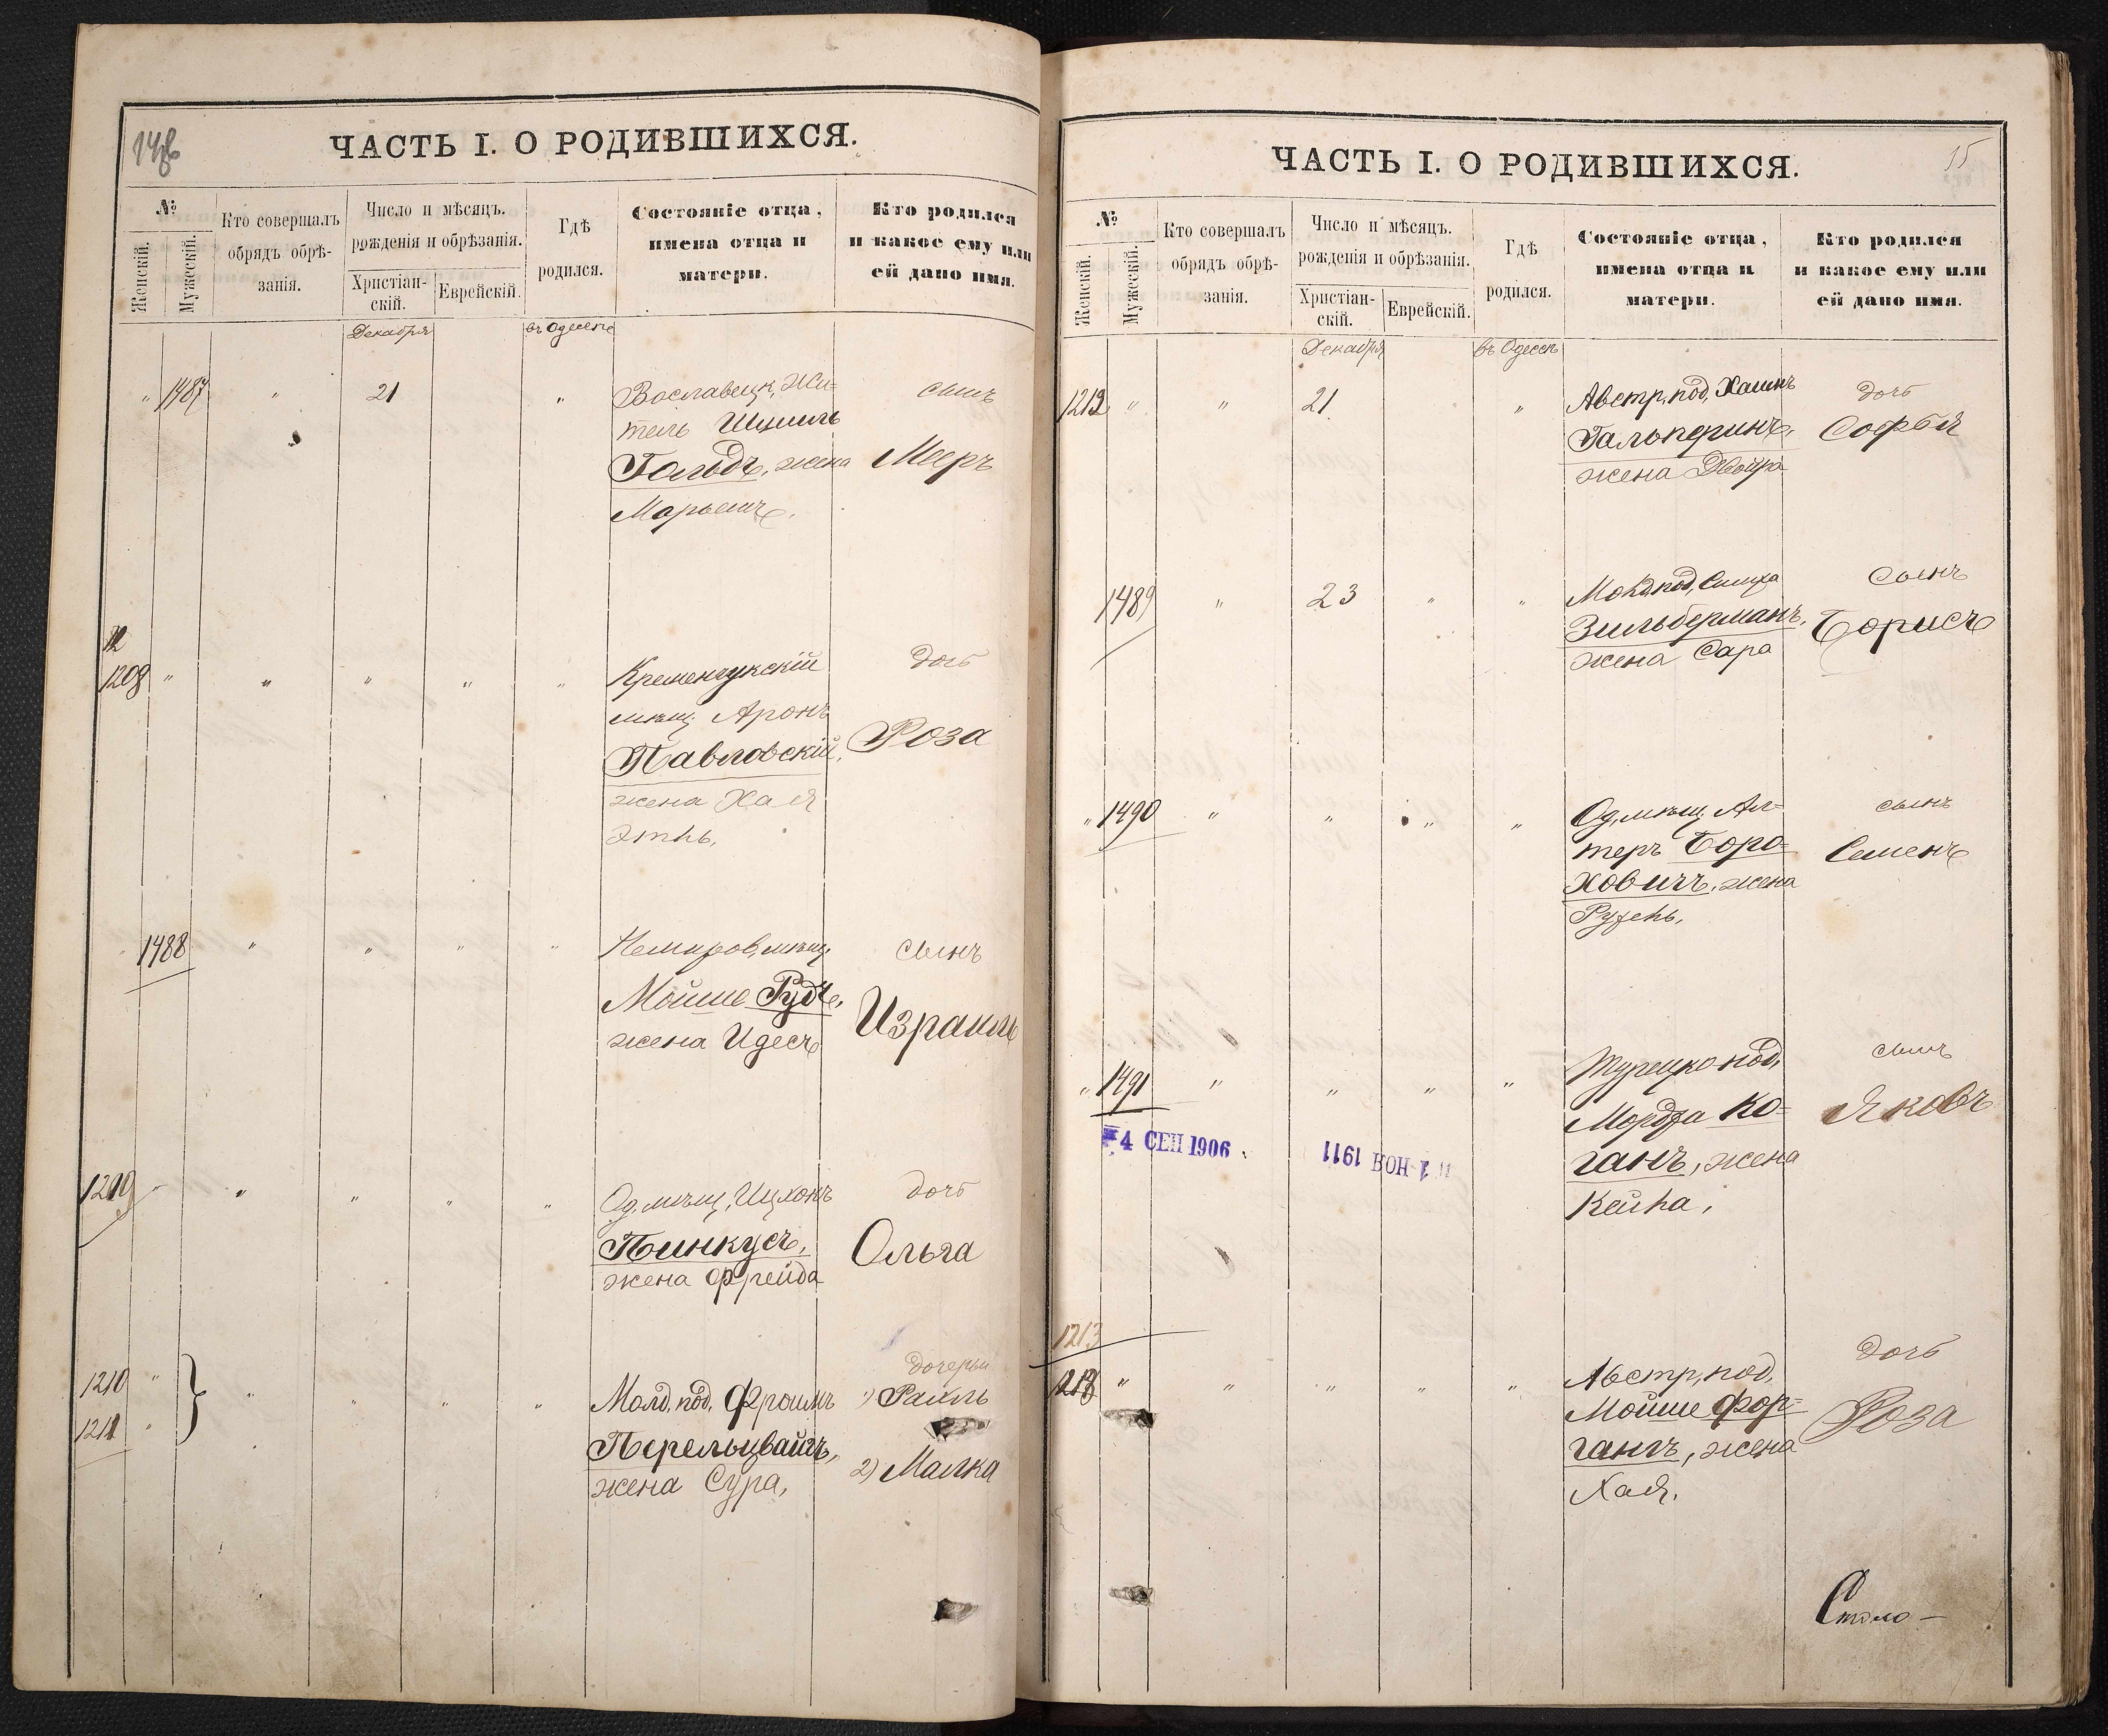 ЧАСТЬ I. О РОДИВШИХСЯ.
№
Женскій.
Мужескій.
Кто совершалъ
обрядъ обрѣ-
занія.
Число и мѣсяцъ.
рожденія и обрѣзанія.
Христіан-
скій.
Еврейскій.
Гдѣ
родился.
Состояніе отца,
имена отца и
матери.
Кто родился
и какое ему или
ей дано имя.
Декабря
въ Одессѣ
" 1487 " 21 "
тель Шмиль
Гольдъ, жена
сынъ
Мееръ
1208 " " " " "
Кременчукскій
мѣщ. Аронъ
Павловскій,
жена Хая
Этль.
дочь
Роза
1488 " " " "
Немиров, мѣщ.
Мойше Рудъ,
жена Идесъ
сынъ
Израиль
1209 " " " " "
Од. мѣщ,
Пинкусъ,
жена Фрейда
дочь
Ольга
1210 "
1211 "
" " " "
Молд, под, Фроимъ
Перельцвайгъ,
жена Сура,
дочери
1) Раиль
2) Малка
ЧАСТЬ I. О РОДИВШИХСЯ.
15
№
Женскій.
Мужескій.
Кто совершалъ
обрядъ обрѣ-
занія.
Число и мѣсяцъ.
рожденія и обрѣзанія.
Христіан-
скій.
Еврейскій.
Гдѣ
родился.
Состояніе отца,
имена отца и
матери.
Кто родился
и какое ему или
ей дано имя.
Декабря
въ Одессѣ
1212 " " 21 "
Австр, под, Хаимъ
Гальперинъ,
жена Двойра
дочь
Софья
1489 " 23 " "
под, Симха
Зильберманъ,
жена Сара
сынъ
Борисъ
" 1490 " " " "
Од, мѣщ. Ал=
теръ Боро=
ховичъ, жена
сынъ
Семенъ
" 1491 " " " "
Турецко под,
Мордха Ко=
ганъ, жена
Кейла,
сынъ
Яковъ
4 СЕН 1906
1 НОЯ 1911
1213
" " " " "
Австр, под,
Мойше Фор=
гангъ, жена
Хая.
дочь
Роза